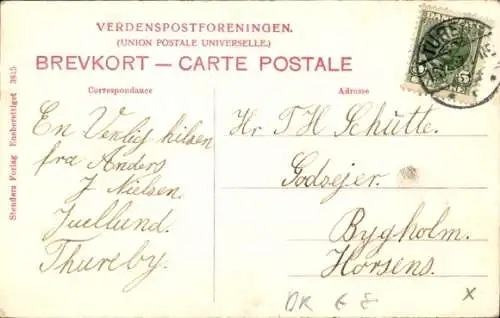 VERDENSPOSTFORENINGEN.
(UNION POSTALE UNIVERSELLE.)
BREVKORT — CARTE POSTALE
Correspondance
En Venlig hilsen
fra Anders
J Nielsen.
Juellund.
Thureby.
Adresse
Hr. T H Schütte.
Godsejer.
Bygholm.
Horsens.
Stenders Forlag Eneberettiget 3815
DK
X